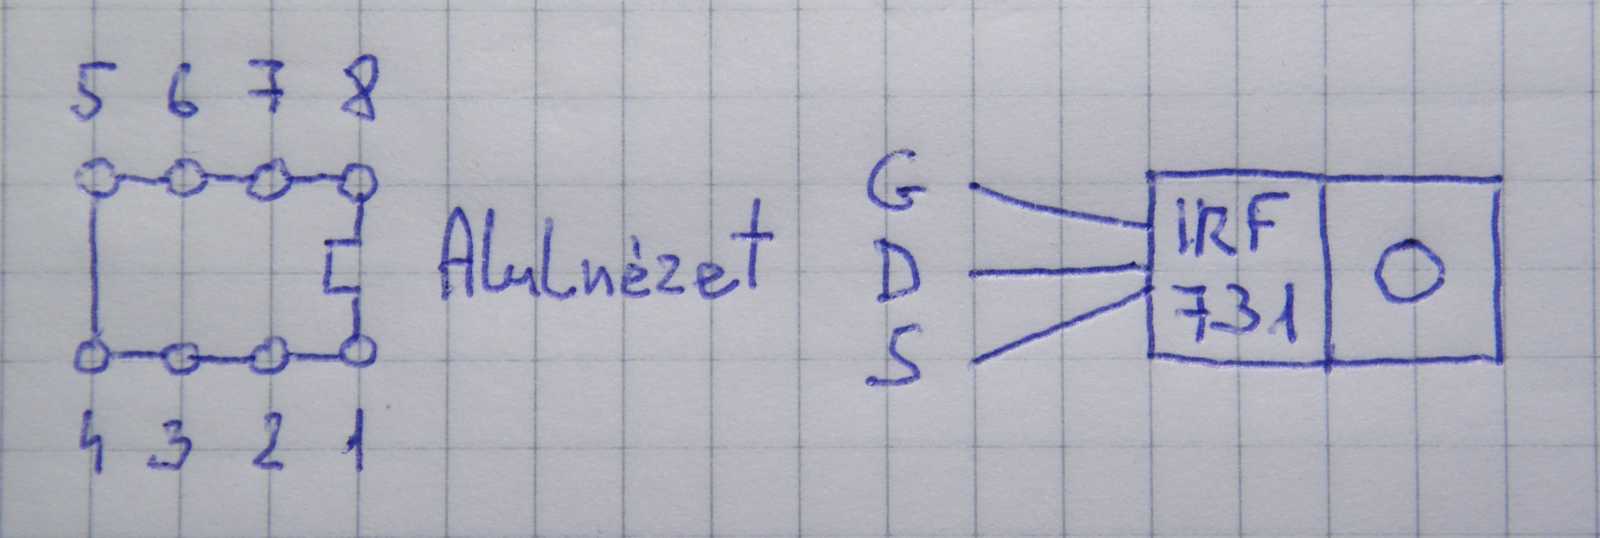 5 6 7 8
Alulnézet
4 3 2 1
G
D
S
IRF
731